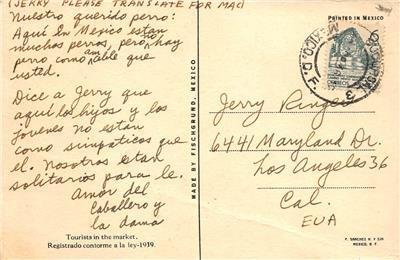 (JERRY PLEASE TRANSLATE FOR MAC)
Nuestro querido perro:
Aquí En Mejico estan
muchos perros, pero no hay
perro como amable que
usted.
Dice a Jerry que
aquí los hijos y los
jovenes no estan
como simpaticos que
el. Nosotros estan
solitarios para le.
Amor del
Caballero y
la dama
Tourists in the market.
Registrado conforme a la ley-1939.
MADE BY FISCHGRUND, MEXICO
PRINTED IN MEXICO
MEXICO, D. F.
CORREOS
3
Jerry Ringer
6441 Maryland Dr.
Los Angeles 36
Cal.
EUA
MEXICO, D. F.